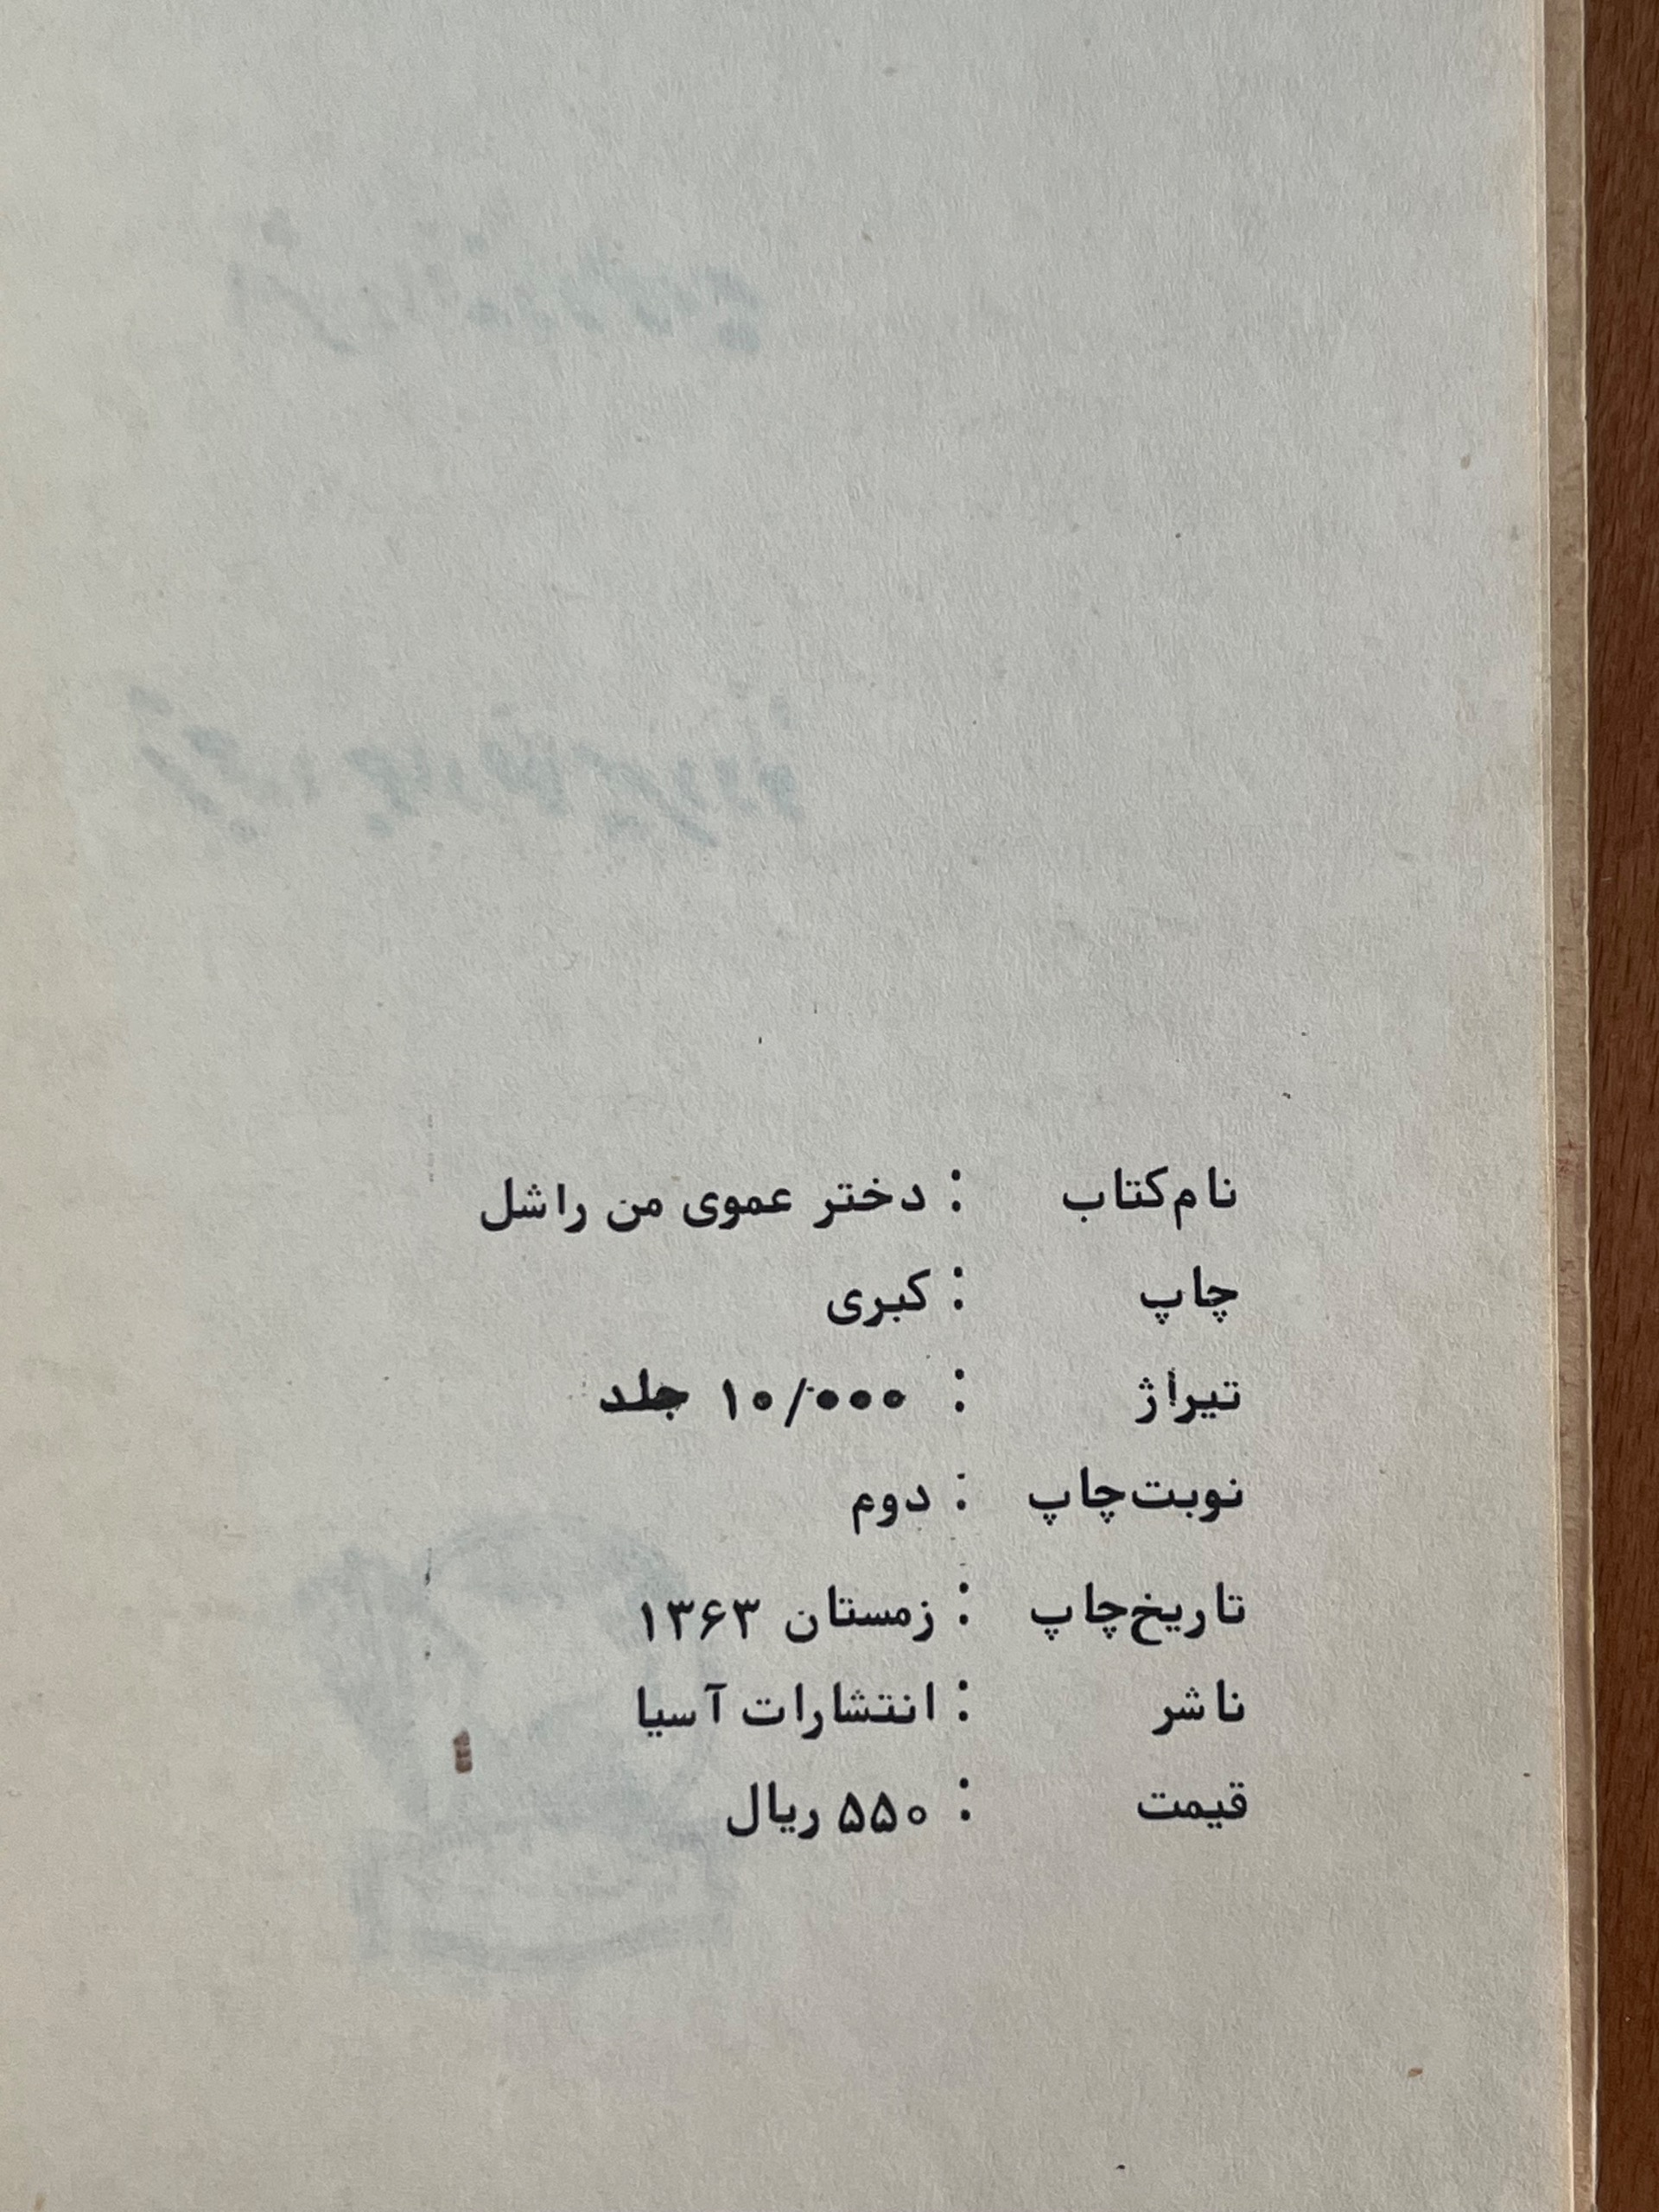 نام‌کتاب : دختر عموی من راشل
چاپ : کبری
تیراژ : ۱۰/۰۰۰ جلد
نوبت‌چاپ : دوم
تاریخ‌چاپ : زمستان ۱۳۶۳
ناشر : انتشارات آسیا
قیمت : ۵۵۰ ریال